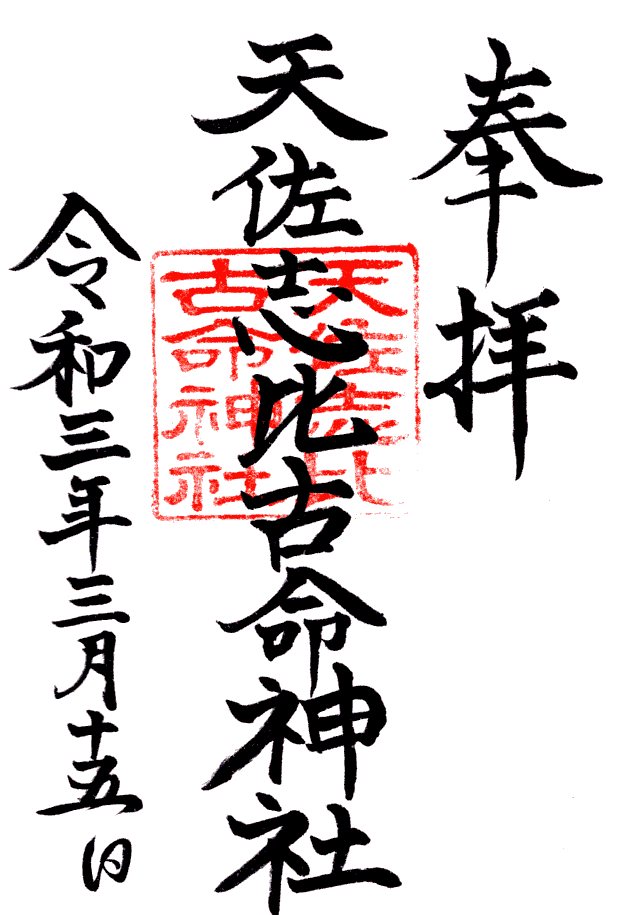 奉拝
天佐志比古命神社
天佐志比
古命神社
令和三年三月十五日